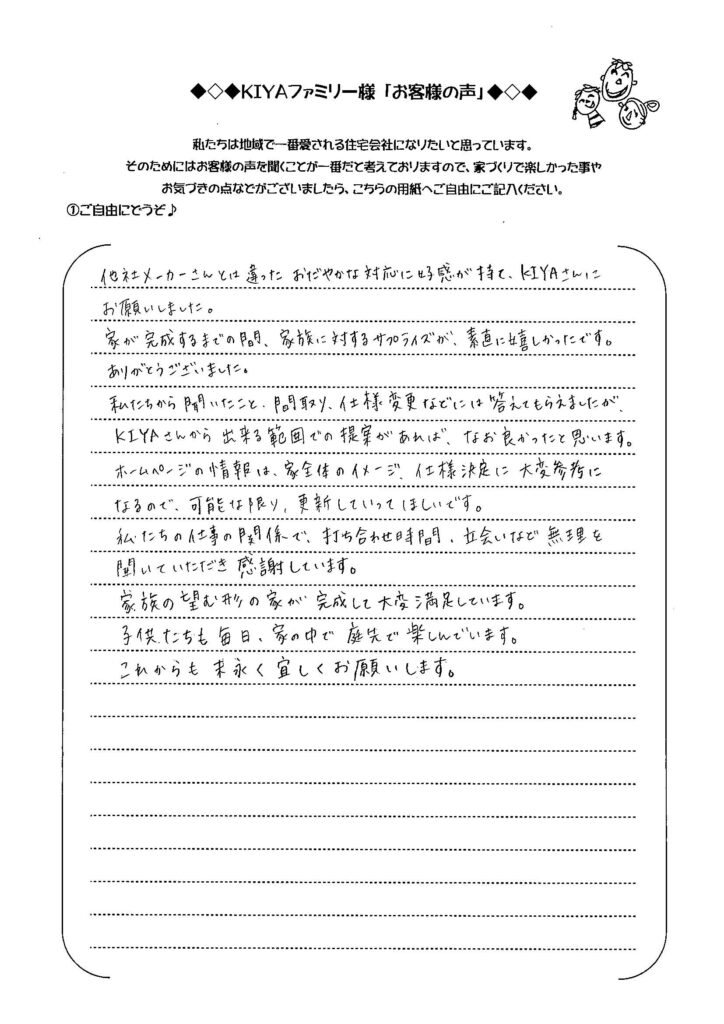 ◆◇◆KIYAファミリー様「お客様の声」◆◇◆
私たちは地域で一番愛される住宅会社になりたいと思っています。
そのためにはお客様の声を聞くことが一番だと考えておりますので、家づくりで楽しかった事や
お気づきの点などがございましたら、こちらの用紙へご自由にご記入ください。
①ご自由にどうぞ♪
他社メーカーさんとは違った おだやかな対応に好感が持て、KIYAさんに
お願いしました。
家が完成するまでの間、家族に対するサプライズが、素直に嬉しかったです。
ありがとうございました。
私たちから聞いたこと、間取り、仕様変更などには答えてもらえましたが、
KIYAさんから出来る範囲での提案があれば、なお良かったと思います。
ホームページの情報は、家全体のイメージ、仕様決定に大変参考に
なるので、可能な限り、更新していってほしいです。
私たちの仕事の関係で、打ち合わせ時間、立会いなど無理を
聞いていただき感謝しています。
家族の望む形の家が完成して大変満足しています。
子供たちも毎日、家の中で庭先で楽しんでいます。
これからも末永く宜しくお願いします。